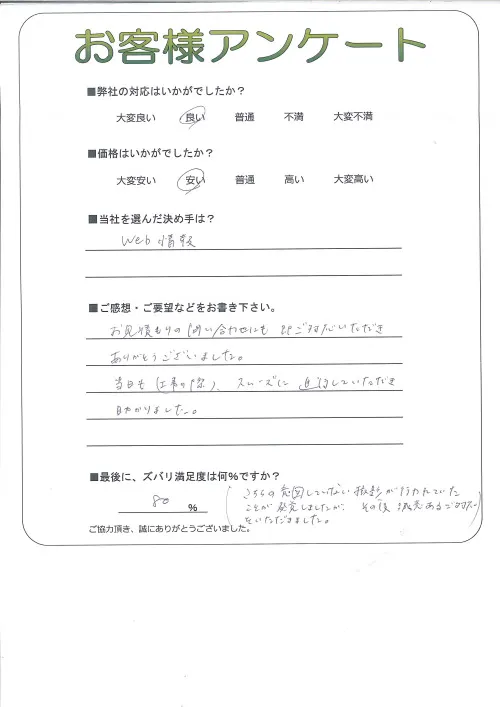 お客様アンケート
■弊社の対応はいかがでしたか？
大変良い 良い 普通 不満 大変不満
■価格はいかがでしたか？
大変安い 安い 普通 高い 大変高い
■当社を選んだ決め手は？
Web情報
■ご感想・ご要望などをお書き下さい。
お見積もりの問い合わせにも ご対応いただき
ありがとうございました。
当日も仕事の際)、スムーズに していただき
助かりました。
■最後に、ズバリ満足度は何％ですか？
80 %
(こちらの意図していない が行われていた
ことが発覚しましたが、その後 あるご対応
をいただきました。
ご協力頂き、誠にありがとうございました。